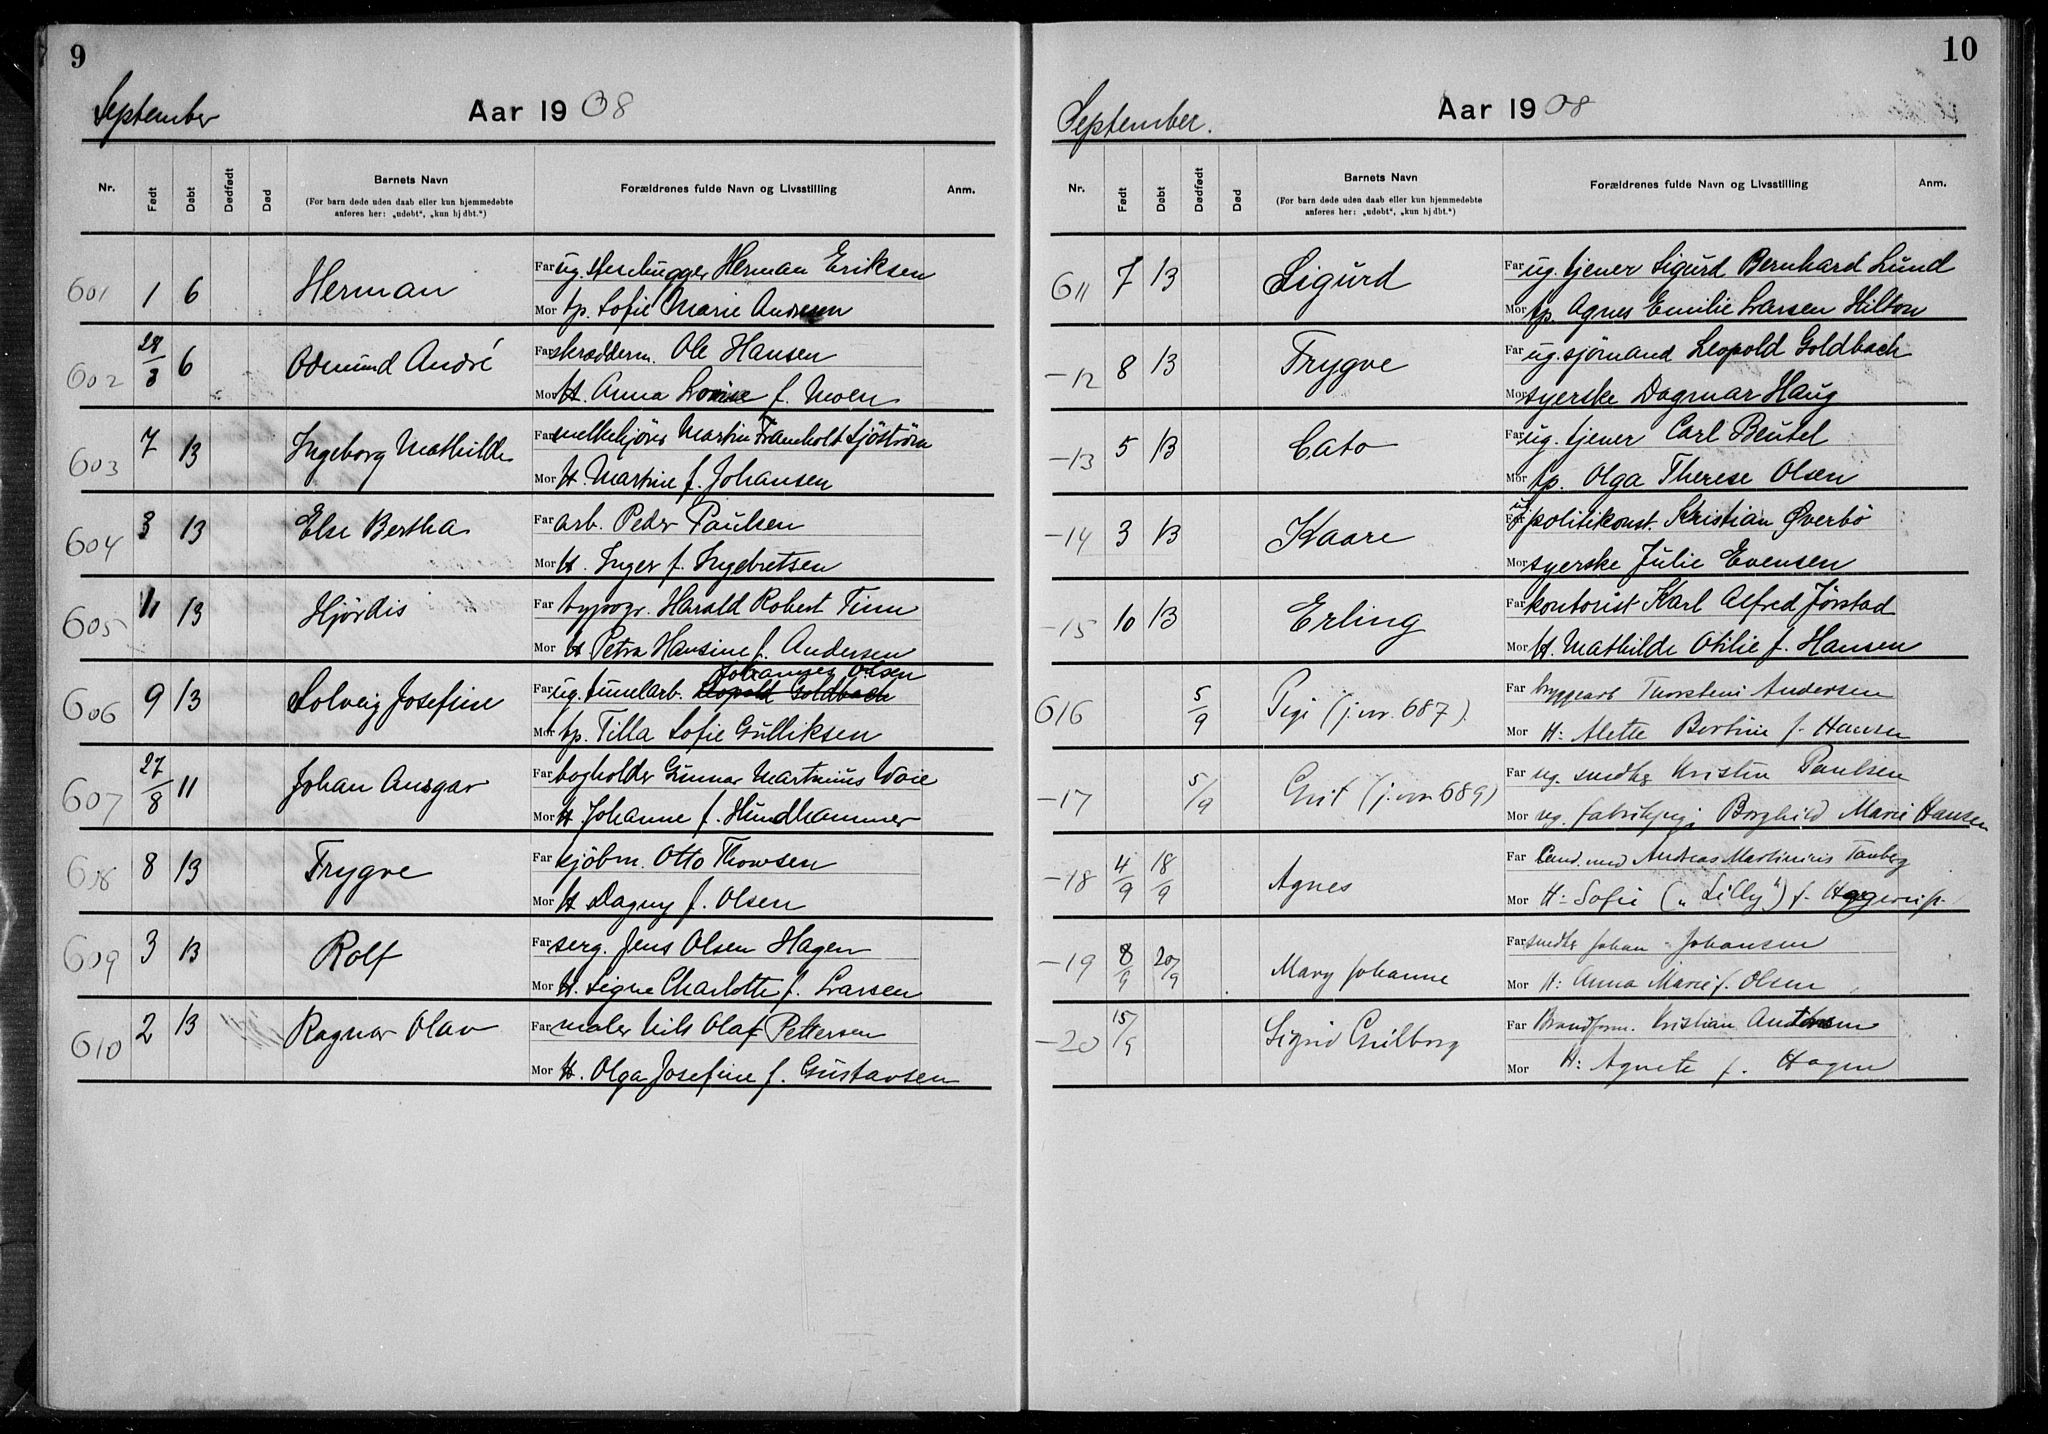 9
September Aar 1908
Nr. Født Døbt Dødfødt Død Barnets Navn Forældrenes fulde Navn og Livsstilling Anm.
(For barn døde uden daab eller kun hjemmedøbte
anføres her: „udøbt“, „kun hj dbt.“)
601 1 6 Herman Far ug. stenhugger Herman Eriksen
Mor tp. Sofie Marie Andresen
602 28/3 6 Odmund André Far skrædderm. Ole Hansen
Mor H. Anna Lovise f. Moen
603 7 13 Ingeborg Mathilde Far melkekjører Martin Framholt Sjöström
Mor H. Martine f. Johansen
604 3 13 Else Bertha Far arb. Peder Paulsen
Mor H. Inger f. Ingebretsen
605 11 13 Hjördis Far typogr. Harald Robert Timm
Mor H Petra Hansine f. Andersen
Johannes Olsen
606 9 13 Solveig Josefine Far ug. tunnelarb. Leopold Goldbach
Mor tp. Tilla Sofie Gulliksen
607 27/8 11 Johan Ansgar Far bogholder Gunnar Martinius Waie
Mor H Johanne f. Hundhammer
608 8 13 Trygve Far sjöbm. Otto Thowsen
Mor H Dagny f. Olsen
609 3 13 Rolf Far serg. Jens Olsen Hagen
Mor H. Signe Charlotte f. Larsen
610 2 13 Ragnar Olav Far maler Nils Olaf Pettersen
Mor H. Olga Josefine f. Gustavsen
10
September. Aar 1908
Nr. Født Døbt Dødfødt Død Barnets Navn Forældrenes fulde Navn og Livsstilling Anm.
(For barn døde uden daab eller kun hjemmedøbte
anføres her: „udøbt“, „kun hj dbt.“)
611 7 13 Sigurd Far ug. tjener Sigurd Bernhard Lund
Mor tp. Agnes Emilie Larsen Hilton
-12 8 13 Trygve Far ug. sjömand Leopold Goldbach
Mor syerske Dagmar Haug
-13 5 13 Cato Far ug. tjener Carl Beutel
Mor tp. Olga Therese Olsen
-14 3 13 Kaare Far ug politikonst. Kristian Øverbö
Mor syerske Julie Evensen
-15 10 13 Erling Far kontorist Karl Alfred Jörstad
Mor H. Mathilde Otilie f. Hansen
616 5/9 Pige (j. nr. 687). Far bryggearb Thorstein Andersen
Mor H: Alette Bertine f. Hansen
-17 5/9 Gut (j. nr. 689) Far ug. snedker Kristin Paulsen
Mor ug. fabrikpige Borghild Marie Hansen
-18 4/9 18/9 Agnes Far Cand. med Andreas Martinius Tanberg
Mor H: Sofie („Lilly“) f. Hagerup.
-19 8/9 20/9 Mary Johanne Far snedker Johan Johansen
Mor H: Anna Marie f. Olsen
-20 15/9 Sigrid Gulborg Far Brandform. Kristian Andersen
Mor H: Agnete f. Hagen